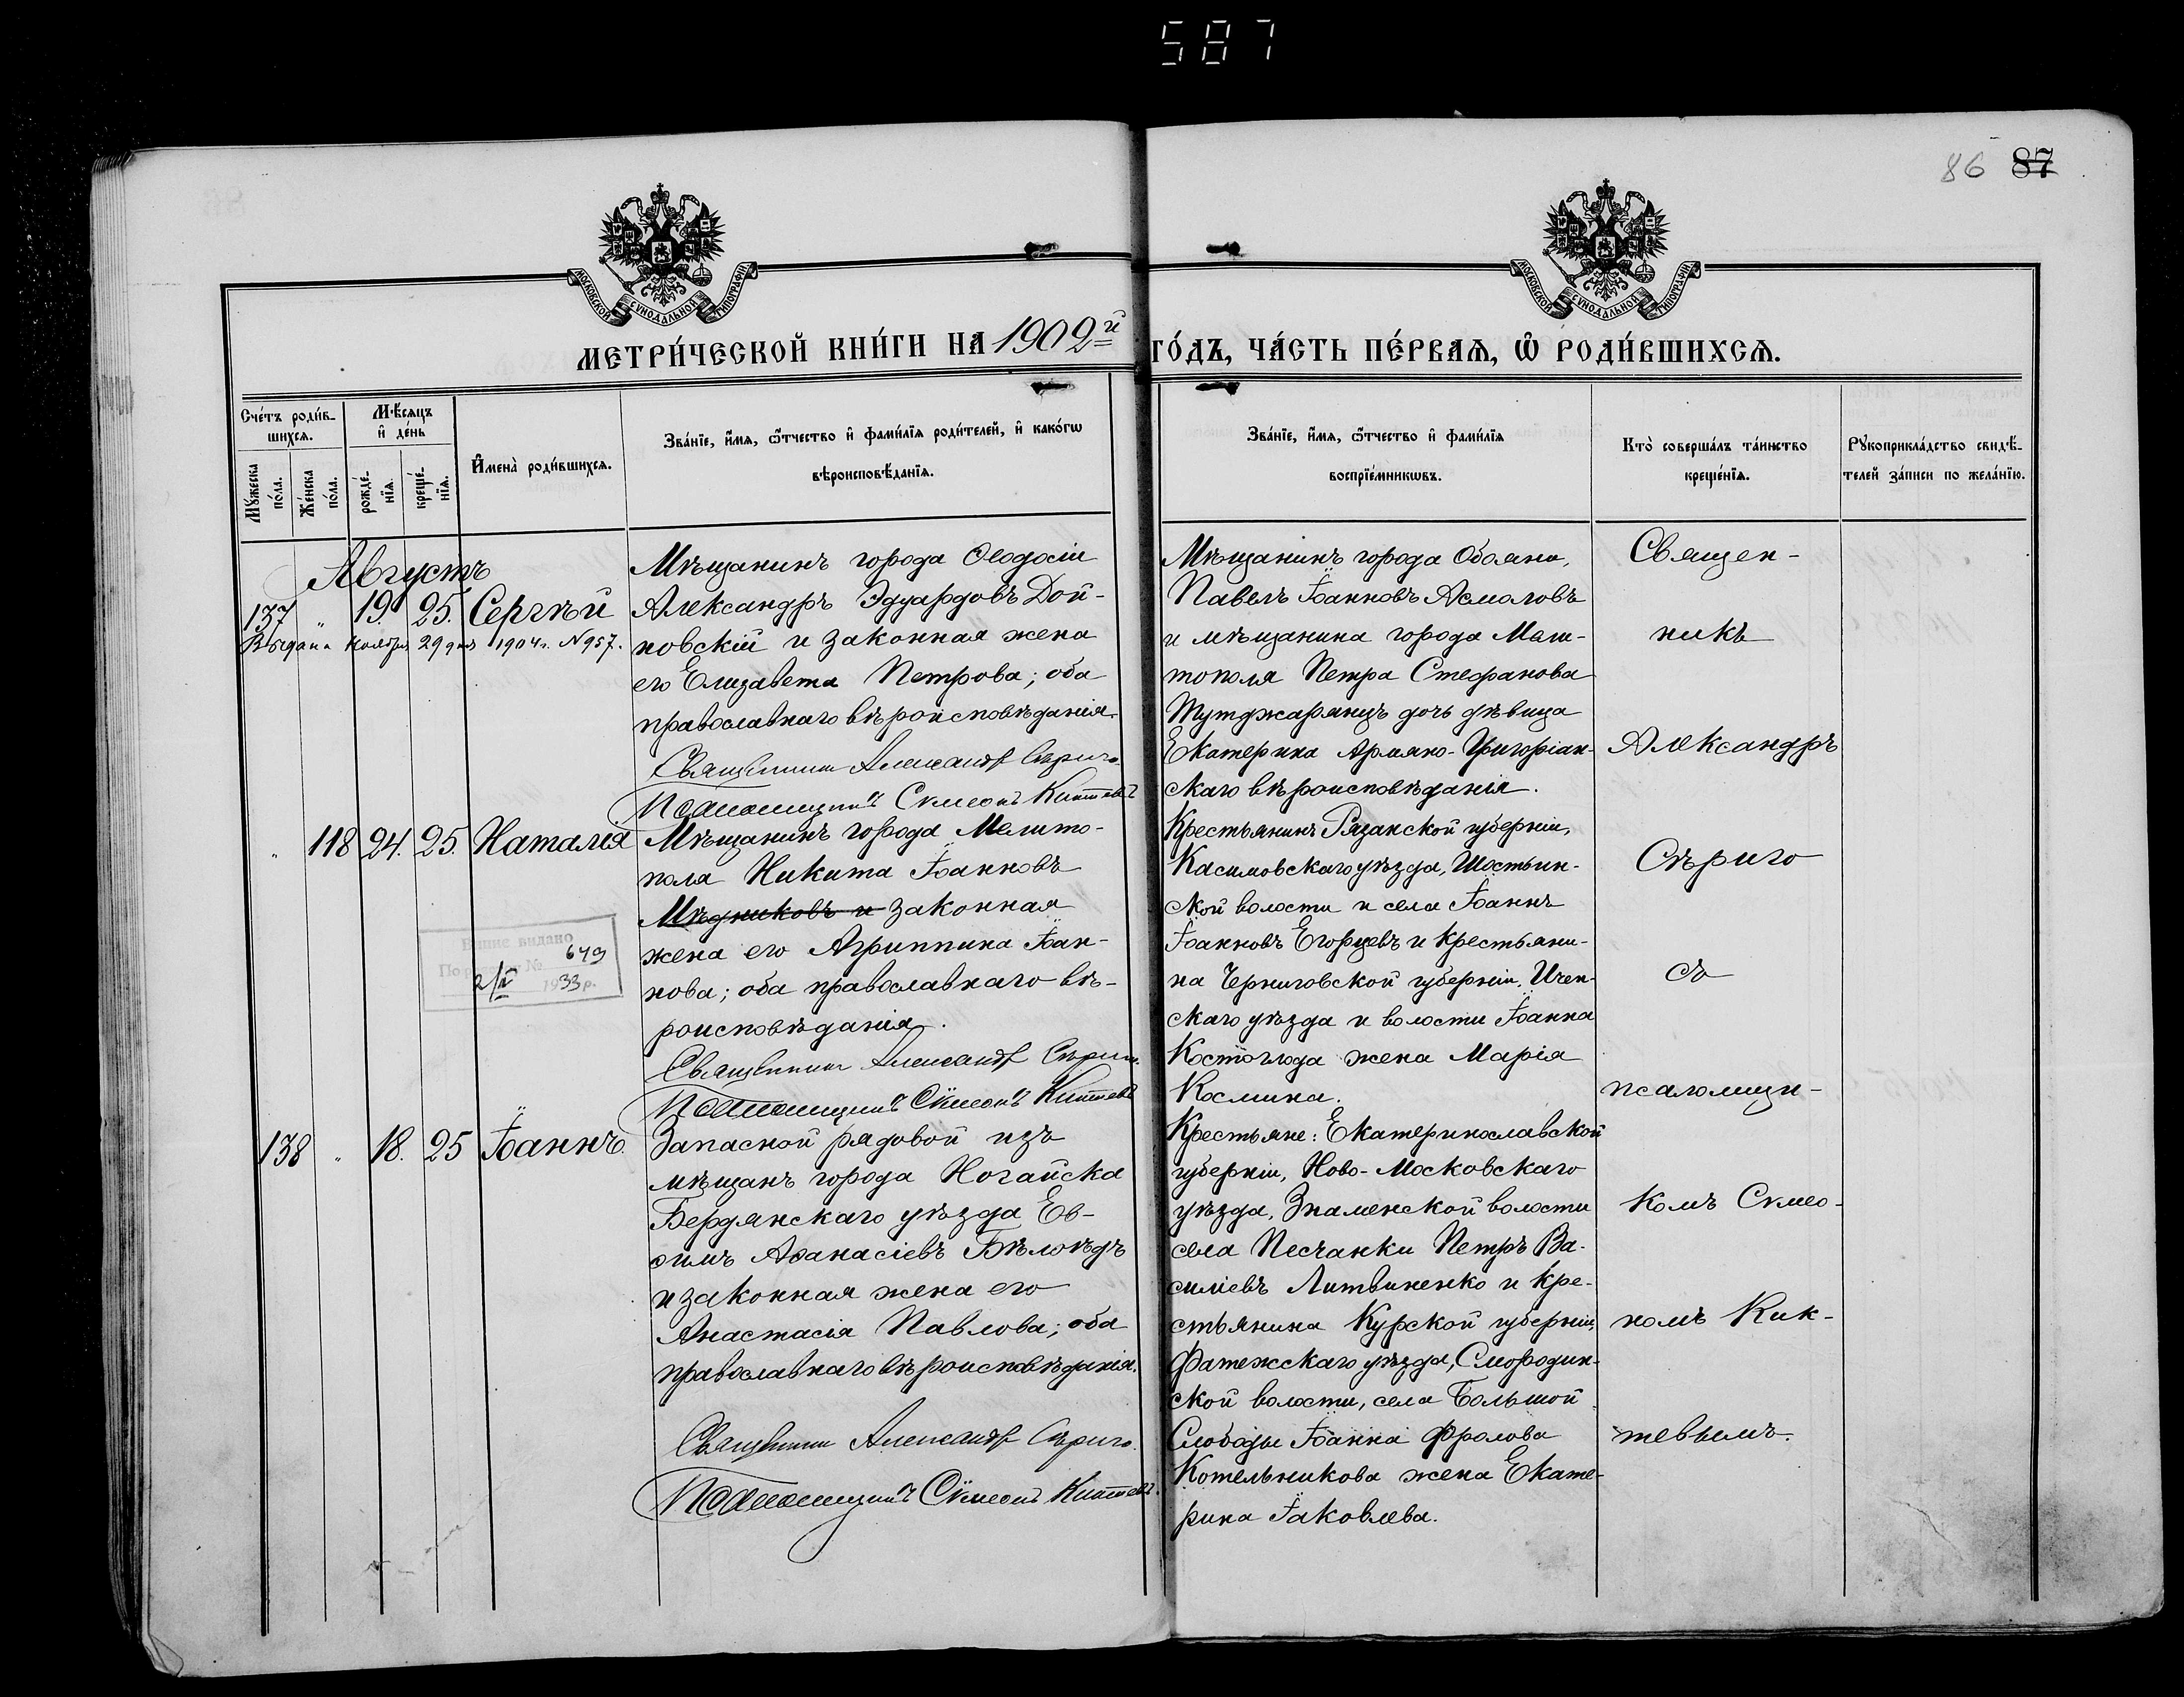 587
86 87
МОСКОВСКОЙ СУНОДАЛЬНОЙ ТИПОГРАФІИ
МОСКОВСКОЙ СУНОДАЛЬНОЙ ТИПОГРАФІИ
МЕТРИ́ЧЕСКОЙ КНИ́ГИ НА 1902й ГО́ДЪ, ЧА́СТЬ ПЕ́РВАЯ, Ѽ РОДИ́ВШИХСЯ.
Сче́тъ роди́в-
шихся.
Мꙋжеска
по́ла.
Же́нска
по́ла.
Мѣ́сяцъ
и҆ де́нь
рожде́-
нїя.
креще́-
нїя.
И҆мена̀ роди́вшихся.
Зва́нїе, и҆́мя, ѻ҆́тчество и҆ фами́лїя роди́телей, и҆ како́гѡ
вѣроисповѣ́данїя.
Зва́нїе, и҆́мя, ѻ҆́тчество и҆ фами́лїя
воспрїе́мникѡвъ.
Кто̀ соверша́лъ та́инство
креще́нїя.
Рꙋкоприкла́дство свидѣ́-
телей за́писи по жела́нїю.
Августъ
137 " 19. 25. Сергѣй
Выдана ноября 29 дня 1904 г. №957.
Мѣщанинъ города Ѳеодосіи
Александръ Эдуардовъ Дой-
новскій и законная жена
его Елизавета Петрова; оба
православнаго вѣроисповѣданія.
Священникъ Александръ Сѣриго.
Псаломщикъ Сѵмеонъ Киктевъ
Мѣщанинъ города Обояни,
Павелъ Іоанновъ Асмоловъ
и мѣщанина города
тополя Петра Стефанова
Тутджарянцъ дочь дѣвица
Екатерина Армяно-Григоріан-
скаго вѣроисповѣданія.
" 118 24. 25. Наталія
Мѣщанинъ города Мелито-
поля Никита Іоанновъ
Мѣдниковъ и законная
жена его Агриппина Іоан-
нова; оба православнаго вѣ-
роисповѣданія.
Священникъ Александръ Сѣриго.
Псаломщикъ Сѵмеонъ Киктевъ
видано
По № 649
2/II 1933 р.
Крестьянинъ Рязанской губерніи,
Касимовскаго уѣзда, Шостьин-
ской волости и села Іоаннъ
Іоанновъ Егорцевъ и крестьяни-
на Черниговской губерніи, Ичен-
скаго уѣзда и волости Іоанна
Костоглода жена Марія
Космина.
138 " 18. 25 Іоаннъ.
Запасной рядовой изъ
мѣщанъ города Ногайска
Бердянскаго уѣзда Ев-
ѳимъ Аѳанасіевъ Бѣловѣдъ
и законная жена его
Анастасія Павлова; оба
православнаго вѣроисповѣданія.
Священникъ Александръ Сѣриго.
Псаломщикъ Сѵмеонъ Киктевъ.
Крестьяне: Екатеринославской
губерніи, Ново-Московскаго
уѣзда, Знаменской волости
села Песчанки Петръ Ва-
силіевъ Литвиненко и кре-
стьянина Курской губерніи,
Фатежскаго уѣзда, Смородин-
ской волости, села Большой
Слободы Іоанна Фролова
Котельникова жена Екате-
рина Іаковлева.
Священ-
никъ
Александръ
Сѣриго
съ
псаломщи-
комъ Сѵмео-
номъ Кик-
тевымъ.